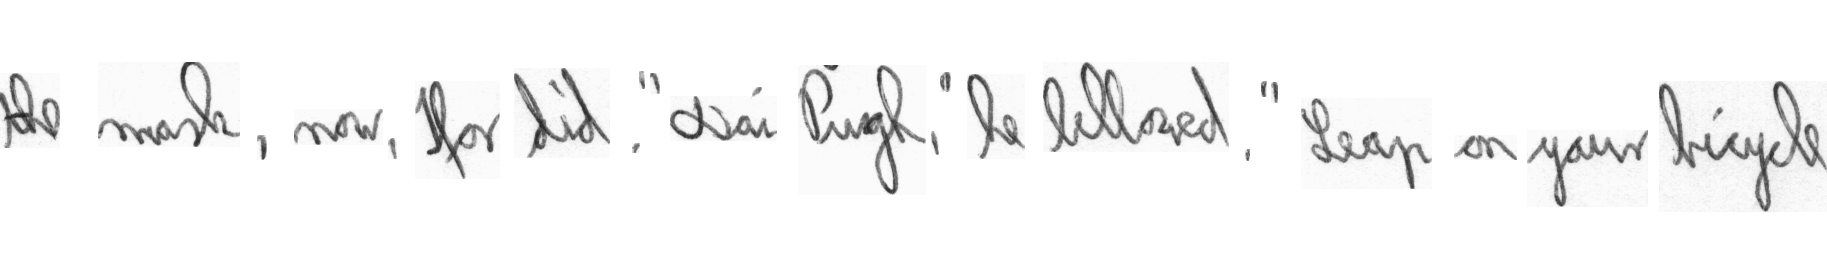 the mask, now, Ifor did. "Dai Pugh," he bellowed. "Leap on your bicycle